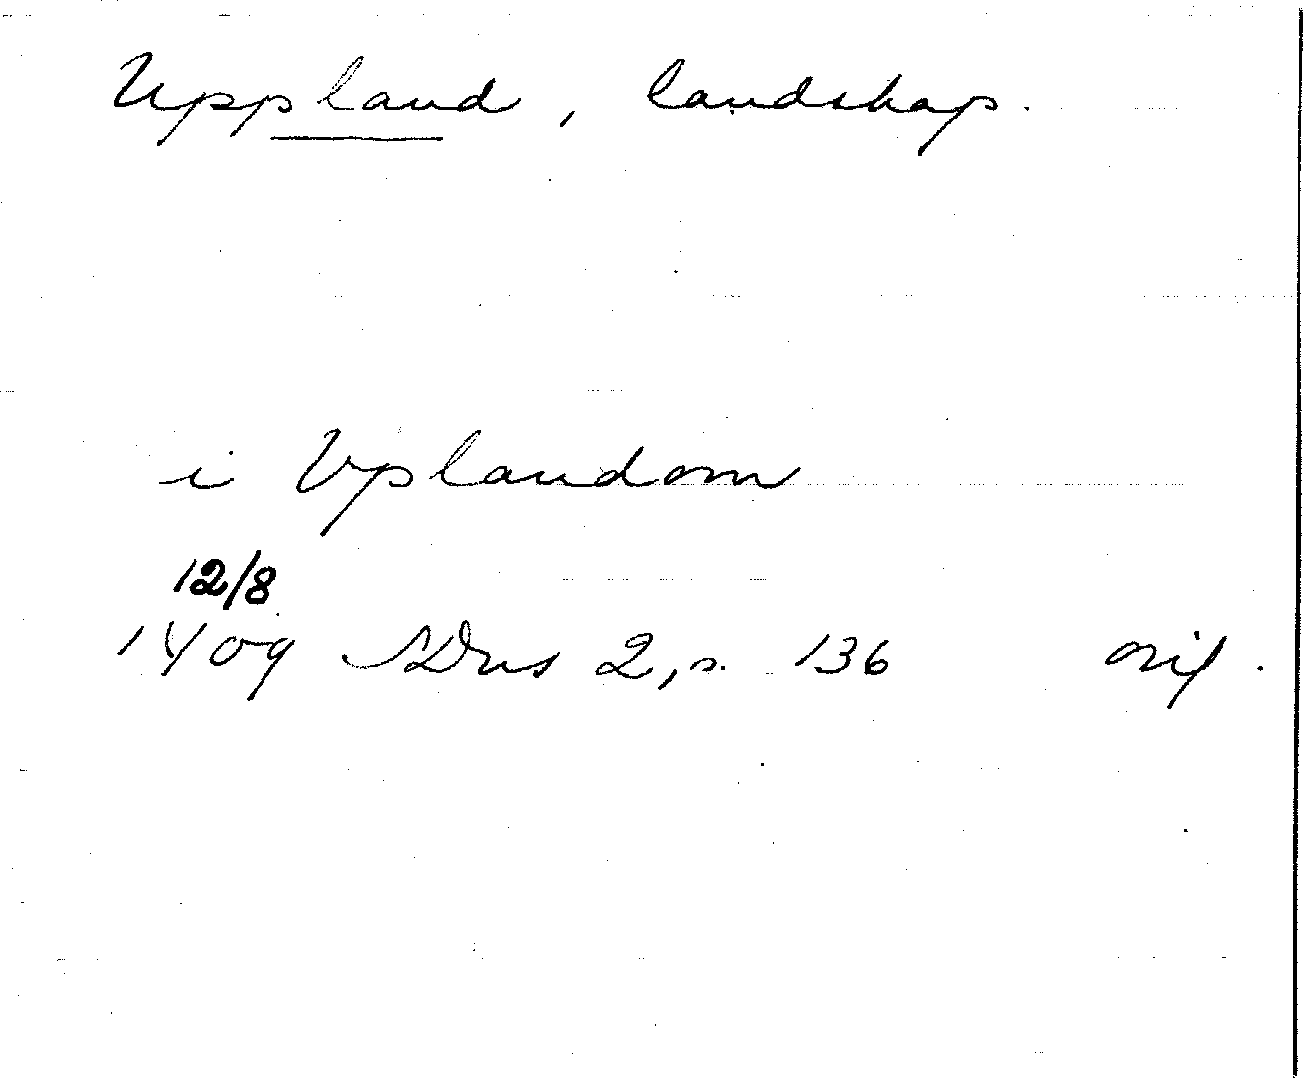 Uppland, landskap.
i Vplandom
12/8
1409 SDns 2, s. 136 orig.